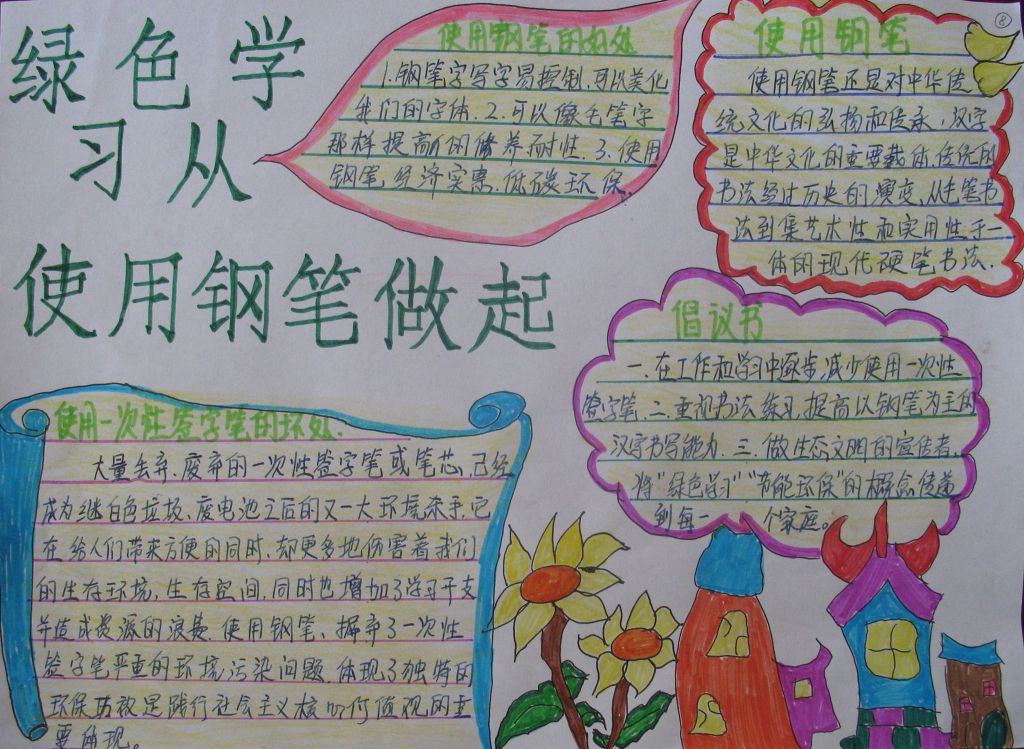 绿色学
习从
使用钢笔做起
使用钢笔的好处
1.钢笔字写字易控制.可以美化
我们的字体.2.可以像毛笔字
那样提高们的修养耐性.3.使用
钢笔经济实惠.低碳环保.
⑧
使用钢笔
使用钢笔还是对中华传
统文化的弘扬和传承,汉字
是中华文化的重要载体,传统的
书法经过历史的演变、从毛笔书
法到集艺术性和实用性于一
体的现代硬笔书法.
倡议书
一.在工作和学习中逐步减少使用一次性
签字笔.二.重视书法练习,提高以钢笔为主的
汉字书写能力.三.做生态文明的宣传者,
将"绿色学习""节能环保"的概念传播
到每一个家庭。
使用一次性签字笔的坏处.
大量丢弃、废弃的一次性签字笔或笔芯,已经
成为继白色垃圾、废电池之后的又一大环境杀手,它
在给人们带来方便的同时,却更多地伤害着我们
的生存环境,生存空间,同时也增加了学习开支
并造成资源的浪费.使用钢笔、摒弃了一次性
签字笔严重的环境污染问题.体现了独特的
环保功效是践行社会主义核心价值观的重
要体现。